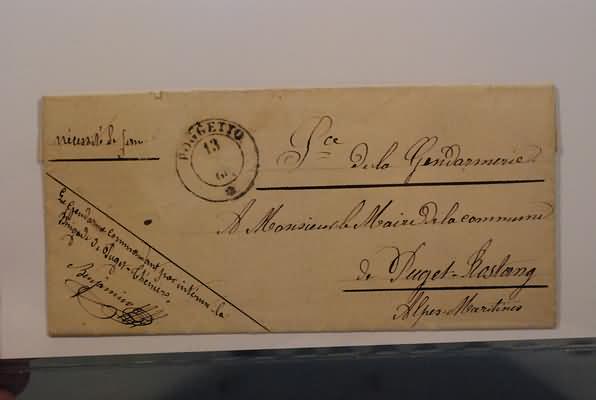 nécessité de fermer
POGGETTO
13
60
Sce
de la Gendarmerie
A Monsieur le Maire de la commune
de Puget-Rostang
Alpes-Maritimes
Le Gendarme commandant par intérim la
Brigade de Puget-Théniers